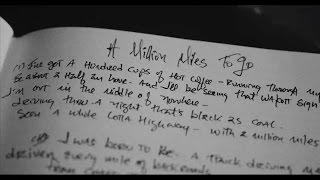 A Million Miles To go
(1) I've got A Hundred Cups of Hot Coffee - Running Through my
a Half And I'll be seeing that sign
I'm out in the middle of nowhere -
driving thru A night that's black as coal
Seen A whole Lotta Highway - with a million miles
I was born to Be - A truck driving
driving every mile of